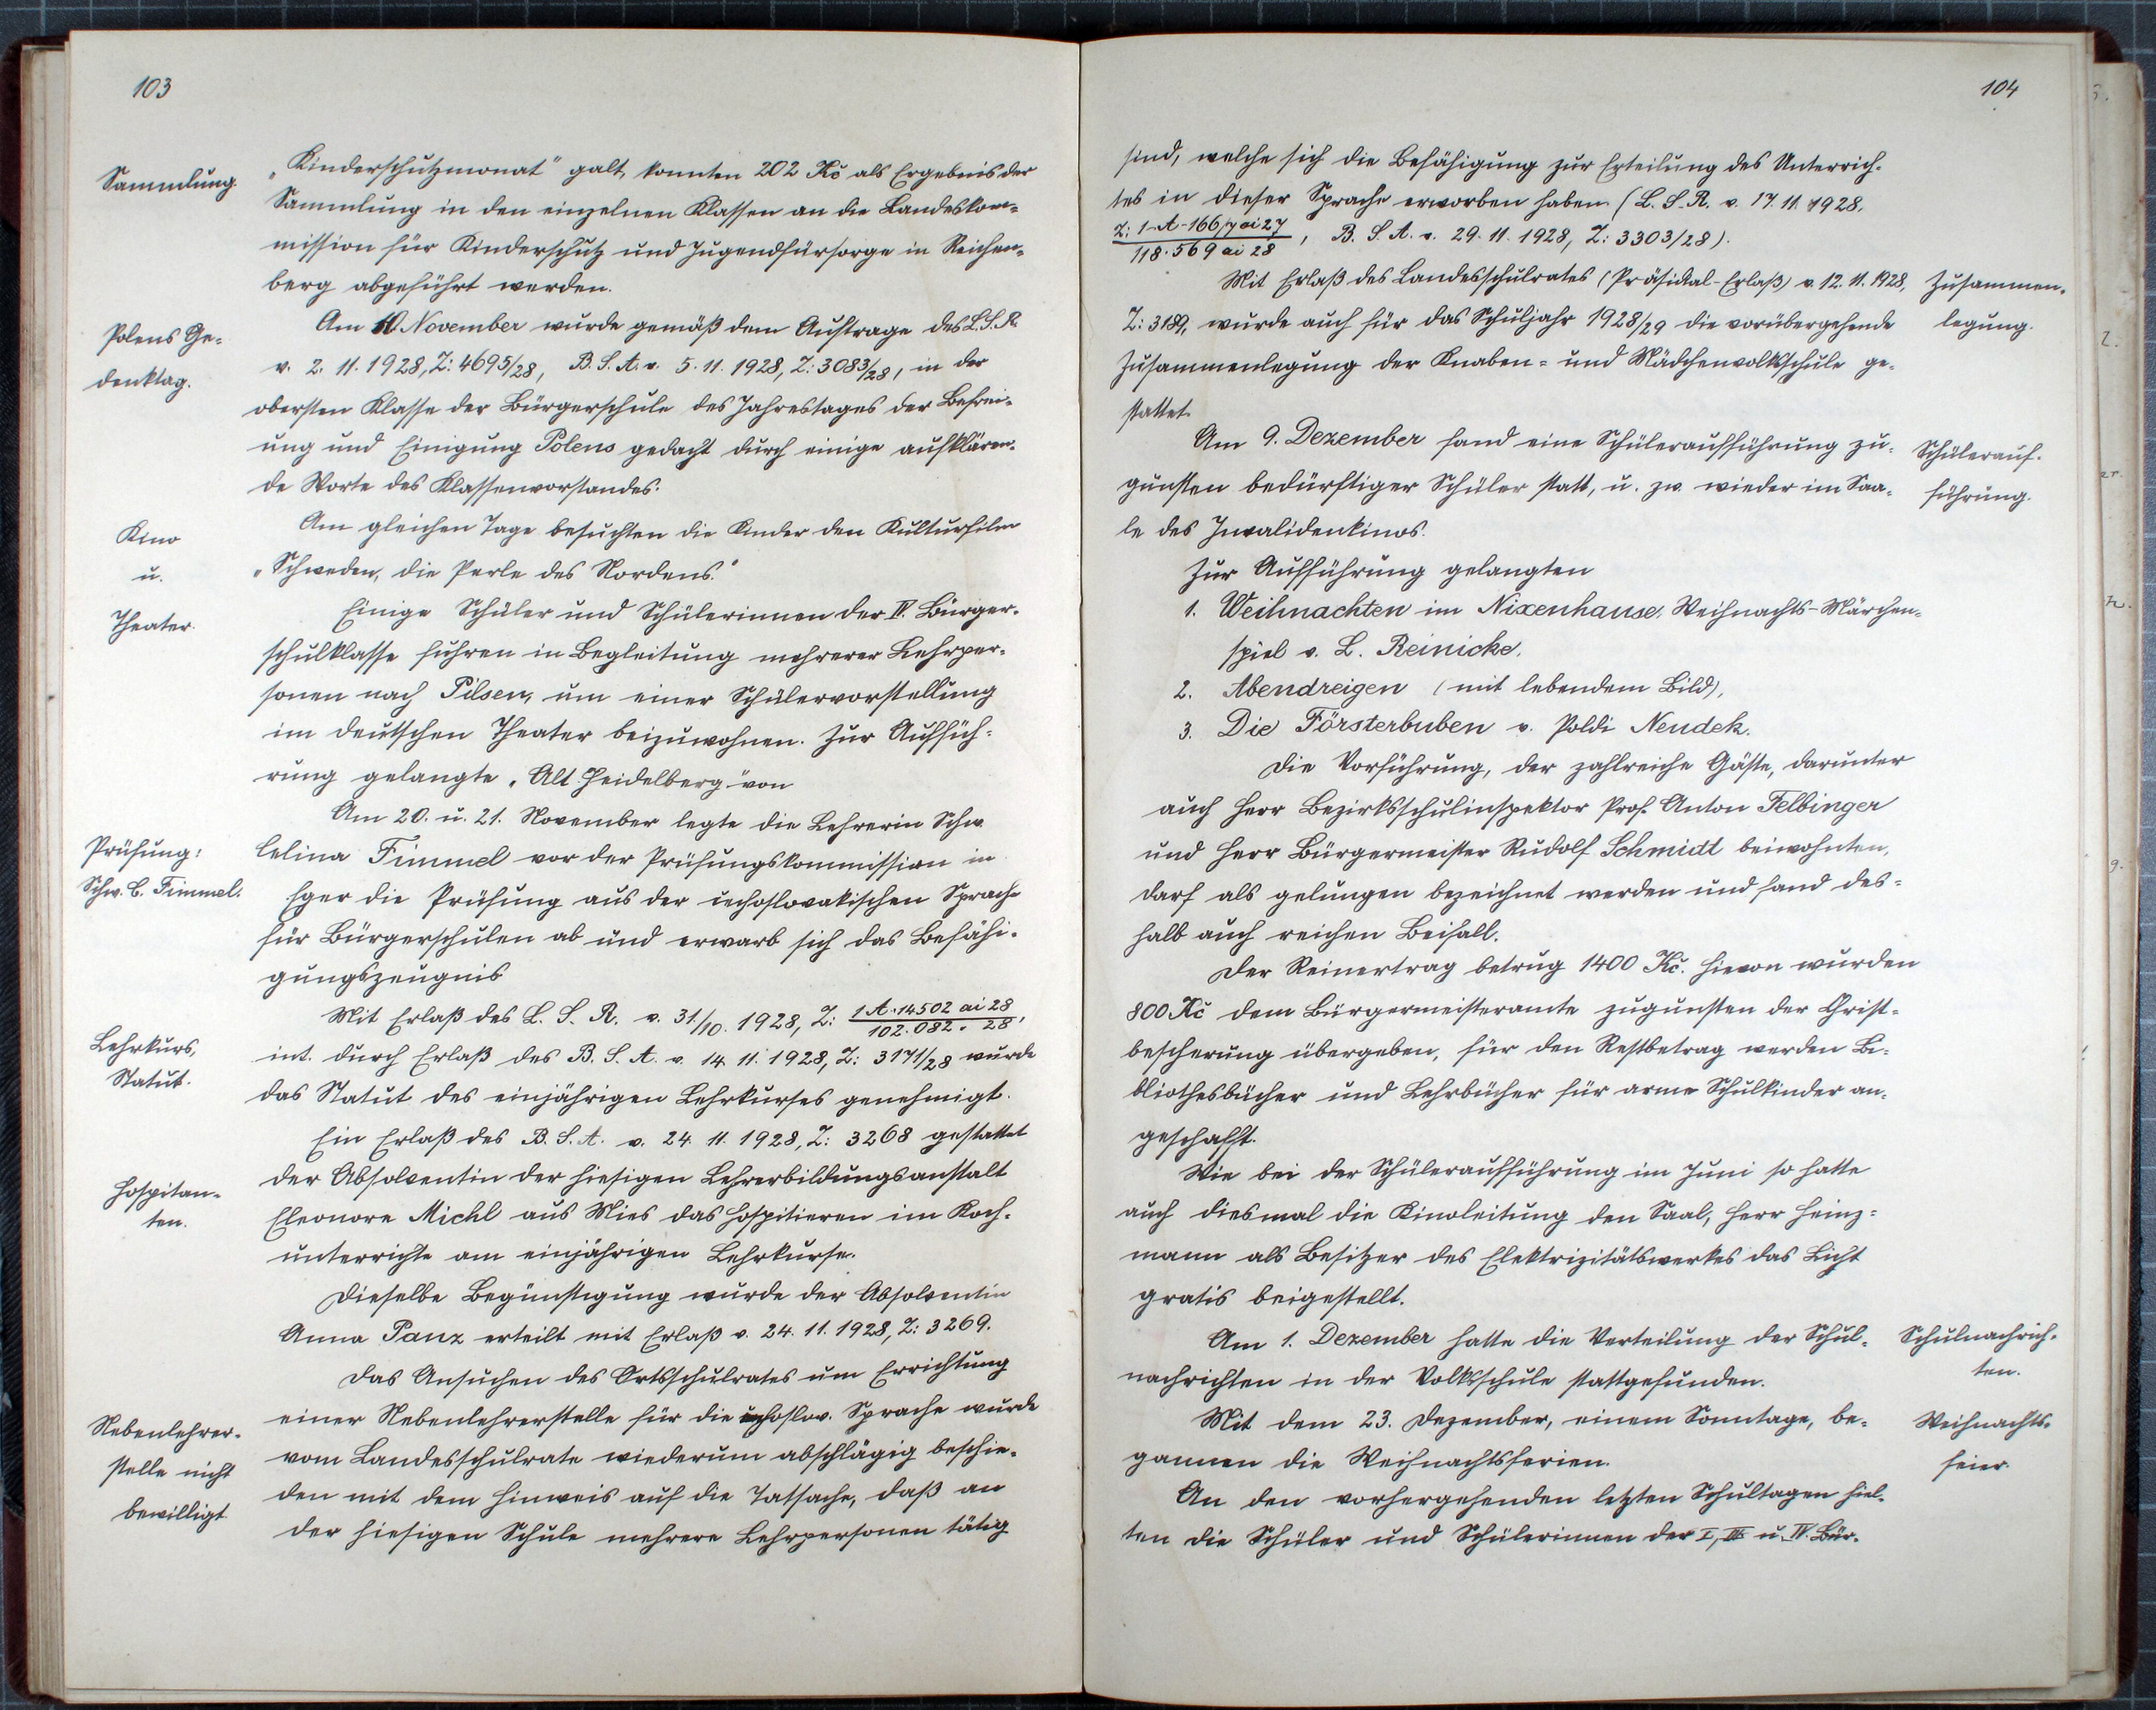 103
Sammlung.
„Kinderschutzmonat" galt, konnten 202 Kč als Ergebnis der
Sammlung in den einzelnen Klassen an die Landeskom-
mission für Kinderschutz und Jugendfürsorge in Reichen-
berg abgeführt werden.
Polens Ge-
denktag.
Am 10. November wurde gemäß dem Auftrage des L.S.R.
v. 2. 11. 1928, Z: 4695/28, B.S.A. v. 5. 11. 1928, Z: 3083/28, in der
obersten Klasse der Bürgerschule des Jahrestages der Befrei-
ung und Einigung Polens gedacht durch einige aufklären-
de Worte des Klassenvorstandes.
Kino
u.
Theater.
Am gleichen Tage besuchten die Kinder den Kulturfilm
„Schweden, die Perle des Nordens."
Einige Schüler und Schülerinnen der IV. Bürger-
schulklasse fuhren in Begleitung mehrerer Lehrper-
sonen nach Pilsen, um einer Schülervorstellung
im deutschen Theater beizuwohnen. Zur Auffüh-
rung gelangte „Alt Heidelberg" von
Prüfung:
Schw. C. Fimmel.
Am 20. u. 21. November legte die Lehrerin Schw.
Celina Fimmel vor der Prüfungskommission in
Eger die Prüfung aus der čechoslovakischen Sprache
für Bürgerschulen ab und erwarb sich das Befähi-
gungszeugnis
Lehrkurs,
Statut.
Mit Erlaß des L. S. R. v. 31./10. 1928, Z: 1 A-14502 ai 28 / 102.082 " 28,
int. durch Erlaß des B. S. A. v. 14. 11. 1928, Z: 3171/28 wurde
das Statut des einjährigen Lehrkurses genehmigt.
Hospitan-
ten.
Ein Erlaß des B. S. A. v. 24. 11. 1928, Z: 3268 gestattet
der Absolventin der hiesigen Lehrerbildungsanstalt
Eleonore Michl aus Mies das Hospitieren im Koch-
unterrichte am einjährigen Lehrkurse.
Dieselbe Begünstigung wurde der Absolventin
Anna Panz erteilt mit Erlaß v. 24. 11. 1928, Z: 3269.
Nebenlehrer-
stelle nicht
bewilligt
Das Ansuchen des Ortsschulrates um Errichtung
einer Nebenlehrerstelle für die čechoslov. Sprache wurde
vom Landesschulrate wiederum abschlägig beschie-
den mit dem Hinweis auf die Tatsache, daß an
der hiesigen Schule mehrere Lehrpersonen tätig
104
sind, welche sich die Befähigung zur Erteilung des Unterrich-
tes in dieser Sprache erworben haben. (L. S. R. v. 17. 11. 1928,
Z: 1-A-166/7 ai 27 / 118.569 ai 28, B. S. A. v. 29. 11. 1928, Z: 3303/28).
Mit Erlaß des Landesschulrates (Präsidial-Erlaß) v. 12. 11. 1928,
Z: 3189, wurde auch für das Schuljahr 1928/29 die vorübergehende
Zusammenlegung der Knaben- und Mädchenvolksschule ge-
stattet.
Zusammen-
legung.
Am 9. Dezember fand eine Schüleraufführung zu-
gunsten bedürftiger Schüler statt, u. zw. wieder im Saa-
le des Invalidenkinos.
Schülerauf-
führung.
Zur Aufführung gelangten
1. Weihnachten im Nixenhause, Weihnachts-Märchen-
spiel v. L. Reinicke.
2. Abendreigen (mit lebendem Bild),
3. Die Försterbuben v. Poldi Neudek.
Die Vorführung, der zahlreiche Gäste, darunter
auch Herr Bezirksschulinspektor Prof. Anton Felbinger
und Herr Bürgermeister Rudolf Schmidt beiwohnten,
darf als gelungen bezeichnet werden und fand des-
halb auch reichen Beifall.
Der Reinertrag betrug 1400 Kč. Hievon wurden
800 Kč dem Bürgermeisteramte zugunsten der Christ-
bescherung übergeben, für den Restbetrag werden Bi-
bliothesbücher und Lehrbücher für arme Schulkinder an-
geschafft.
Wie bei der Schüleraufführung im Juni so hatte
auch diesmal die Kinoleitung den Saal, Herr Heinz-
mann als Besitzer des Elektrizitätswerkes das Licht
gratis beigestellt.
Am 1. Dezember hatte die Verteilung der Schul-
nachrichten in der Volksschule stattgefunden.
Schulnachrich-
ten.
Mit dem 23. Dezember, einem Sonntage, be-
gannen die Weihnachtsferien.
Weihnachts-
feier.
An den vorhergehenden letzten Schultagen hiel-
ten die Schüler und Schülerinnen der I, III u. IV. Bür-